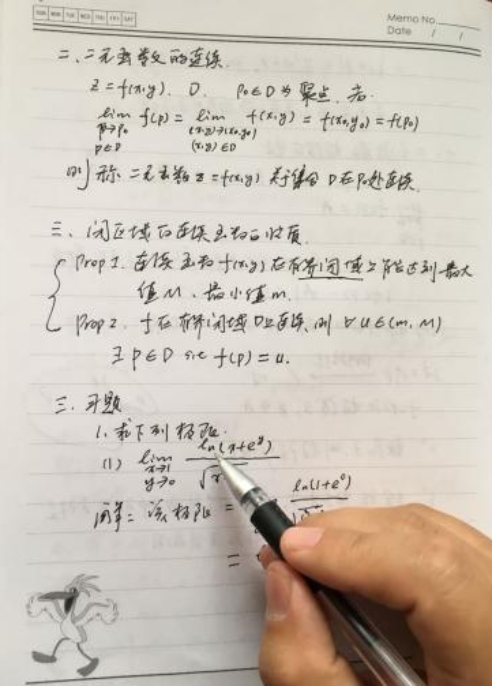 SUN MON TUE WED THU FRI SAT
Memo No.
Date / /
二、二元函数的连续.
z = f(x,y). D. P₀∈D为聚点. 若
lim f(p) = lim f(x,y) = f(x₀,y₀) = f(P₀)
P→P₀ (x,y)→(x₀,y₀)
P∈D (x,y)∈D
则称二元函数z=f(x,y)关于集合D在P₀处连续.
三、闭区域的连续函数的性质.
Prop 1. 连续函数f(x,y)在有界闭域上能达到最大
值M, 最小值m.
Prop 2. f在有界闭域D上连续, 则 ∀u∈(m, M)
∃ P∈D s.t f(p) = u.
三. 习题
1. 求下列极限.
(1) lim ln(x+e^y)
x→1 √x
y→0
解: 该极限 = ln(1+e⁰)
=